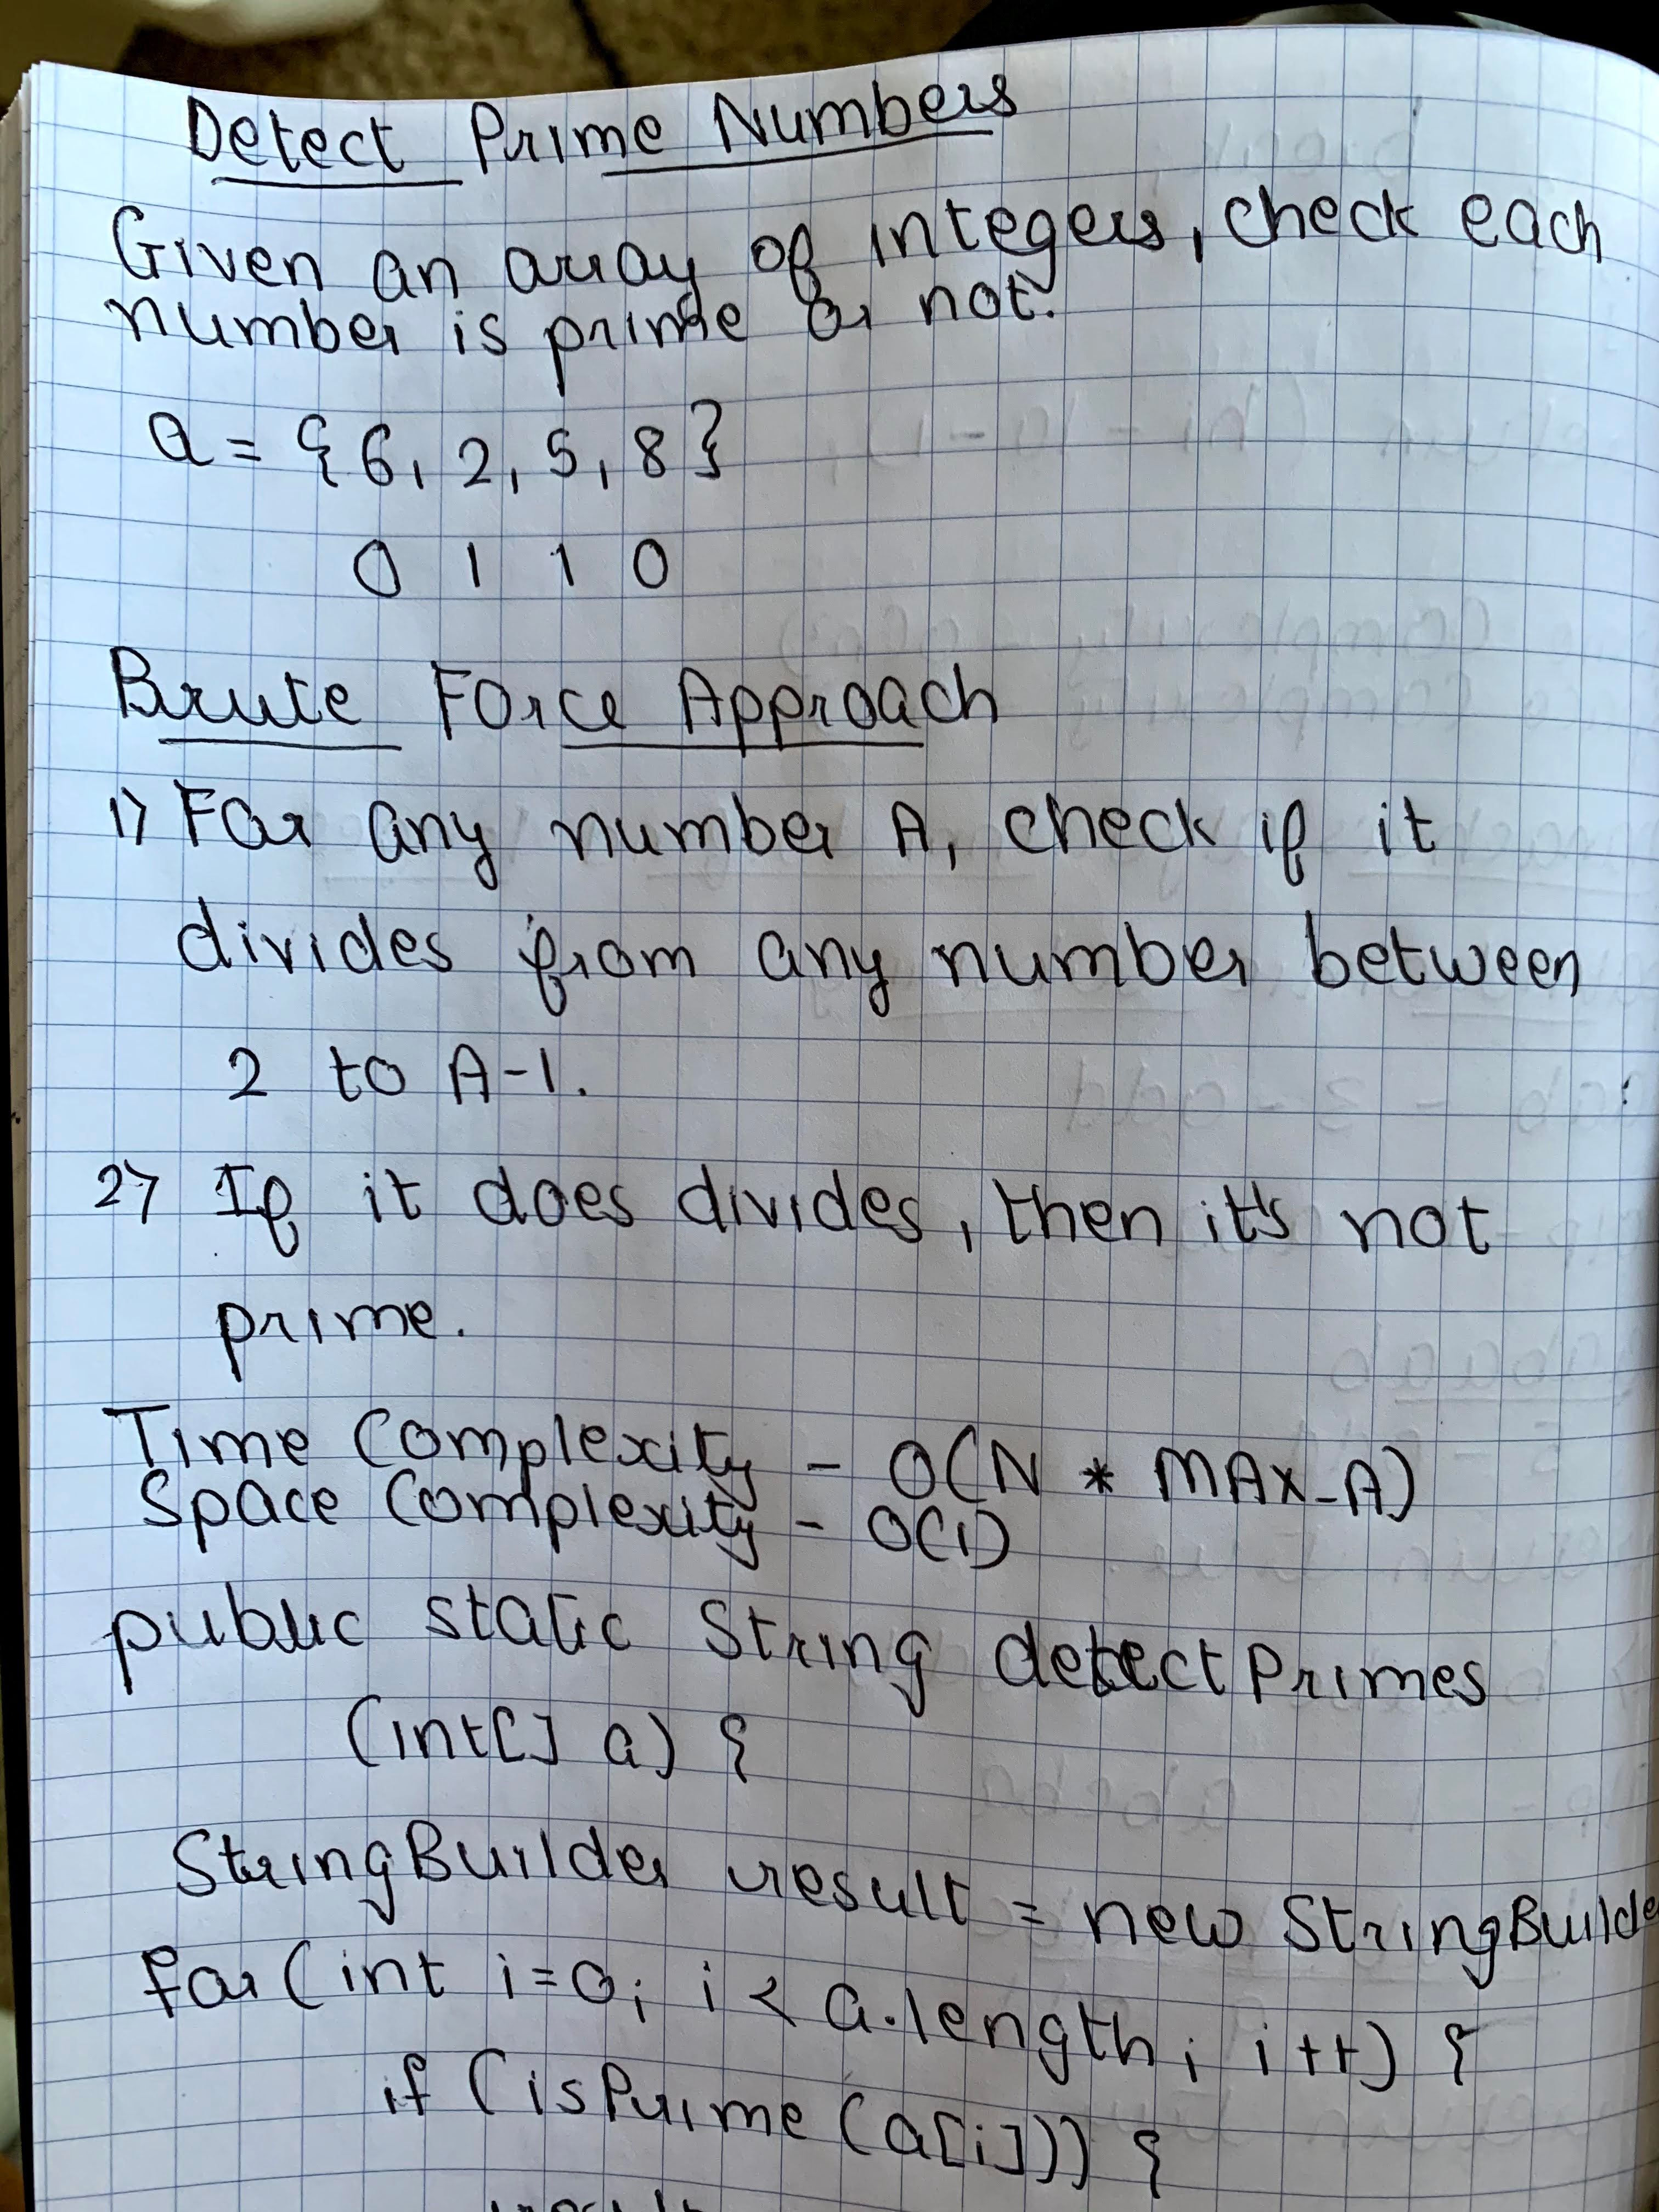 Detect Prime Numbers
Given an array of integers, check each
number is prime or not.
a = {6, 2, 5, 8}
0 1 1 0
Brute Force Approach
1) For any number A, check if it
divides from any number between
2 to A-1.
2) If it does divides, then it's not
prime.
Time Complexity - O(N * MAX_A)
Space Complexity - O(1)
public static String detectPrimes
(int[] a) {
StringBuilder result = new StringBuilde
for(int i=0; i < a.length; i++) {
if (isPrime (a[i])) {